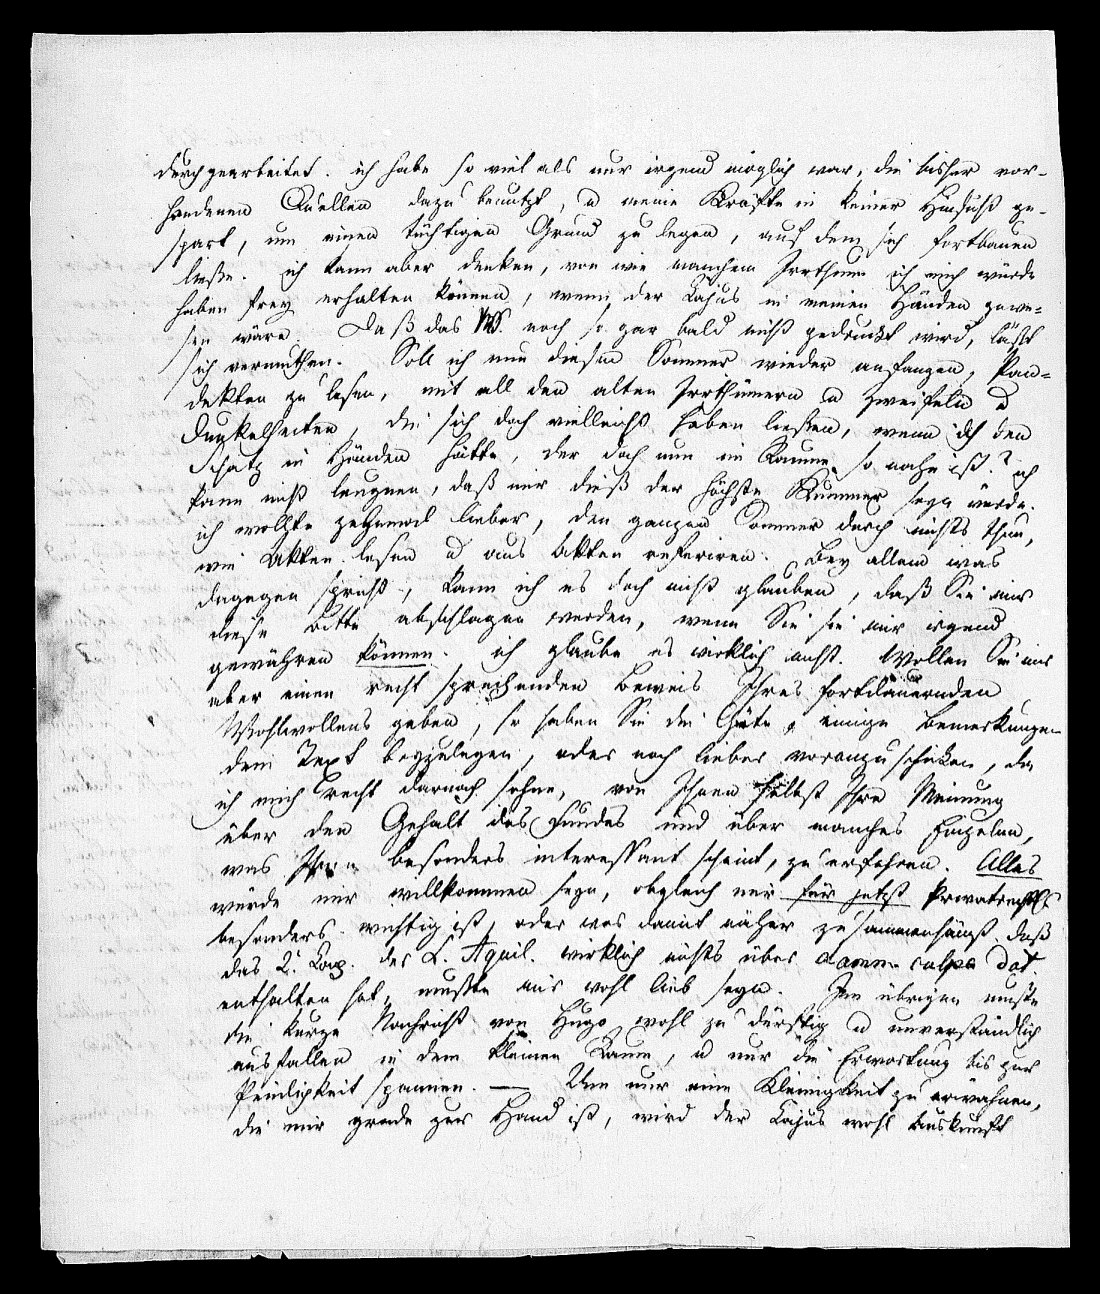 durchgearbeitet. ich habe so viel als nur irgend möglich war, die bisher vor-
handenen Quellen dazu benutzt, u meine Kräfte in keiner Hinsicht ge-
spart, um einen tüchtigen Grund zu legen, auf dem sich fortbauen
ließe. ich kann aber denken, von wie manchem Irrthum ich mich würde
haben frey erhalten können, wenn der Cajus in meinen Händen gewe-
sen wäre. Daß das MS. noch so gar bald nicht gedruckt wird, läßt
sich vermuthen. Soll ich nun diesen Sommer wieder anfangen, Pan-
dekten zu lesen, mit all den alten Irrthümern u Zweifeln u
Dunkelheiten, die sich doch vielleicht heben ließen, wenn ich den
Schatz in Händen hätte, der doch nun im Raume so nahe ist? ich
kann nicht leugnen, daß mir dieß der höchste Kummer seyn würde.
ich wollte zehnmal lieber, den ganzen Sommer durch nichts thun,
wie Akten lesen u aus Akten referiren. Bey allem was
dagegen spricht, kann ich es doch nicht glauben, daß Sie mir
diese Bitte abschlagen werden, wenn Sie sie mir irgend
gewähren können. ich glaube es wirklich nicht. Wollen Sie mir
aber einen recht sprechenden Beweis Ihres fortdauernden
Wohlwollens geben, so haben Sie die Güte, einige Bemerkungen
dem Text beyzulegen, oder noch lieber voranzuschicken, da
ich mich recht darnach sehne, von Ihnen selbst Ihre Meinung
über den Gehalt des Fundes und über manches Einzelne,
was Ihnen besonders interessant scheint, zu erfahren. Alles
würde mir willkommen seyn, obgleich mir für jetzt Privatrecht
besonders wichtig ist, oder was damit näher zusammenhängt. Daß
das 2. Cap. der L. Aquil. wirklich nichts über damn. culpa dat.
enthalten hat, mußte mir wohl lieb seyn. Im übrigen mußte
die kurze Nachricht von Hugo wohl zu dürftig u unverständlich
ausfallen in dem kleinen Raum, u nur die Erwartung bis zur
Peinlichkeit spannen. — Um nur eine Kleinigkeit zu erwähnen,
die mir grade zur Hand ist, wird der Cajus wohl Auskunft